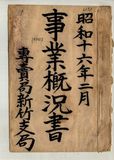 昭和十六年二月
事業概況書
專賣局新竹支局